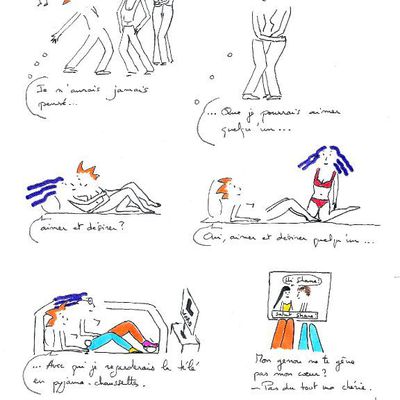 Je n'aurais jamais
pensé...
... Que je pourrais aimer
quelqu'un...
aimer et désirer?
Oui, aimer et désirer quelqu'un...
... Avec qui je regarderais la télé
en pyjama-chaussettes.
Hi Shane!
Salut Shane!
Mon genou ne te gêne
pas mon cœur?
- Pas du tout ma chérie.